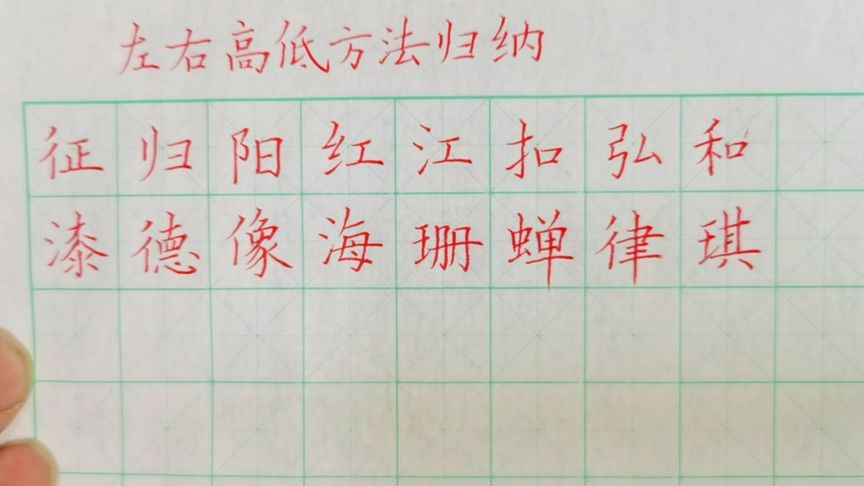 左右高低方法归纳
征归阳红江扣弘和
漆德像海珊蝉律琪